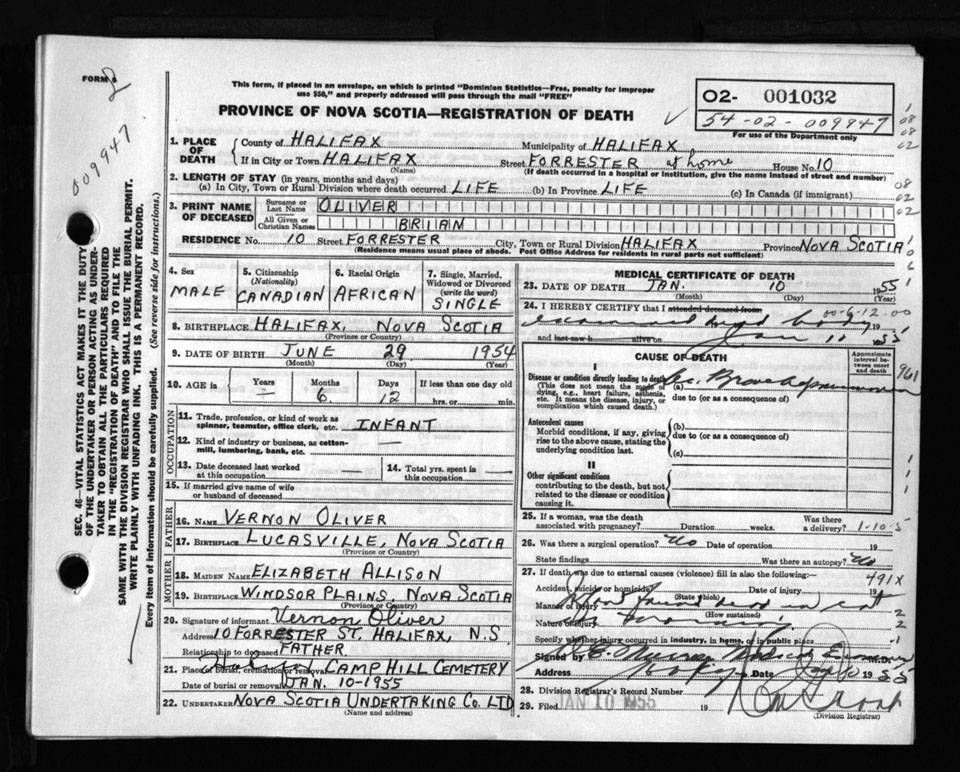 FORM 6
2
009947
This form, if placed in an envelope, on which is printed "Dominion Statistics—Free, penalty for improper
use $50," and properly addressed will pass through the mail "FREE"
PROVINCE OF NOVA SCOTIA—REGISTRATION OF DEATH
02- 001032
54-02-009947
For use of the Department only
SEC. 46—VITAL STATISTICS ACT MAKES IT THE DUTY
OF THE UNDERTAKER OR PERSON ACTING AS UNDER-
TAKER TO OBTAIN ALL THE PARTICULARS REQUIRED
IN THE "REGISTRATION OF DEATH" AND TO FILE THE
SAME WITH THE DIVISION REGISTRAR WHO SHALL ISSUE THE BURIAL PERMIT.
WRITE PLAINLY WITH UNFADING INK. THIS IS A PERMANENT RECORD.
Every item of information should be carefully supplied. (See reverse side for instructions.)
1. PLACE OF DEATH
County of HALIFAX Municipality of HALIFAX
If in City or Town HALIFAX Street FORRESTER at home House No. 10
(Name) (If death occurred in a hospital or institution, give the name instead of street and number)
2. LENGTH OF STAY (in years, months and days)
(a) In City, Town or Rural Division where death occurred LIFE (b) In Province LIFE (c) In Canada (if immigrant)
3. PRINT NAME OF DECEASED
Surname or Last Name OLIVER
All Given or Christian Names BRIIAN
RESIDENCE No. 10 Street FORRESTER City, Town or Rural Division HALIFAX Province NOVA SCOTIA
(Residence means usual place of abode. Post Office Address for residents in rural parts not sufficient)
4. Sex MALE
5. Citizenship (Nationality) CANADIAN
6. Racial Origin AFRICAN
7. Single, Married, Widowed or Divorced (write the word) SINGLE
8. BIRTHPLACE HALIFAX, NOVA SCOTIA
(Province or Country)
9. DATE OF BIRTH JUNE 29 1954
(Month) (Day) (Year)
10. AGE IN Years — Months 6 Days 12 If less than one day old
hrs. or min.
OCCUPATION
11. Trade, profession, or kind of work as
spinner, teamster, office clerk, etc. INFANT
12. Kind of industry or business, as cotton-
mill, lumbering, bank, etc. —
13. Date deceased last worked
at this occupation —
14. Total yrs. spent in
this occupation —
15. If married give name of wife
or husband of deceased
FATHER
16. NAME VERNON OLIVER
17. BIRTHPLACE LUCASVILLE, NOVA SCOTIA
(Province or Country)
MOTHER
18. MAIDEN NAME ELIZABETH ALLISON
19. BIRTHPLACE WINDSOR PLAINS, NOVA SCOTIA
(Province or Country)
20. Signature of informant Vernon Oliver
Address 10 FORRESTER ST. HALIFAX, N.S.
Relationship to deceased FATHER
21. Place of burial, cremation or removal CAMP HILL CEMETERY
Date of burial or removal JAN. 10-1955
22. UNDERTAKER NOVA SCOTIA UNDERTAKING CO. LTD
(Name and address)
MEDICAL CERTIFICATE OF DEATH
23. DATE OF DEATH JAN. 10 1955
(Month) (Day) (Year)
24. I HEREBY CERTIFY that I attended deceased from
00-6-12-00
19
and last saw h alive on Jan 10 1955
CAUSE OF DEATH
Approximate interval between onset and death
I
Disease or condition directly leading to death
(This does not mean the mode of
dying, e.g., heart failure, asthenia,
etc. It means the disease, injury, or
complication which caused death.)
(a)
due to (or as a consequence of)
Antecedent causes
Morbid conditions, if any, giving
rise to the above cause, stating the
underlying condition last.
(b)
due to (or as a consequence of)
(c)
II
Other significant conditions
contributing to the death, but not
related to the disease or condition
causing it.
25. If a woman, was the death
associated with pregnancy? Duration weeks. Was there a delivery? 1-10-5
26. Was there a surgical operation? No Date of operation 19
State findings Was there an autopsy? No
27. If death was due to external causes (violence) fill in also the following:—
491X
Accident, suicide or homicide? Date of injury 19
(State which)
Manner of injury found dead in cot
(How sustained)
Nature of injury
Specify whether injury occurred in industry, in home, or in public place
Signed by M.D.
Address Date 1955
28. Division Registrar's Record Number
29. Filed JAN 10 1955 19
(Division Registrar)